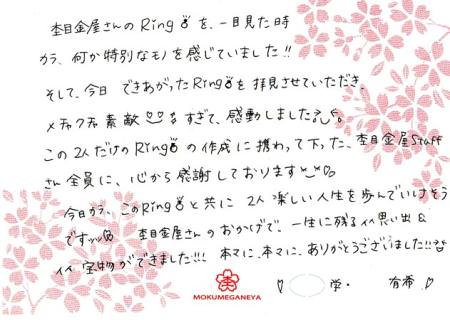 杢目金屋さんのRingを、一目見た時
から、何か特別なモノを感じていました!!
そして、今日 できあがったRingを拝見させていただき、
メチャクチャ素敵すぎて、感動しました。
この2人だけのRingの作成に携わって下った、杢目金屋Staff
さん全員に、心から感謝しております
今日から、このRingと共に 2人 楽しい人生を歩んでいけそう
です 杢目金屋さんのおかげで、一生に残るイイ思い出&
イイ宝物ができました!!! 本マに、本マに、ありがとうございました!!
学・ 有希
MOKUMEGANEYA